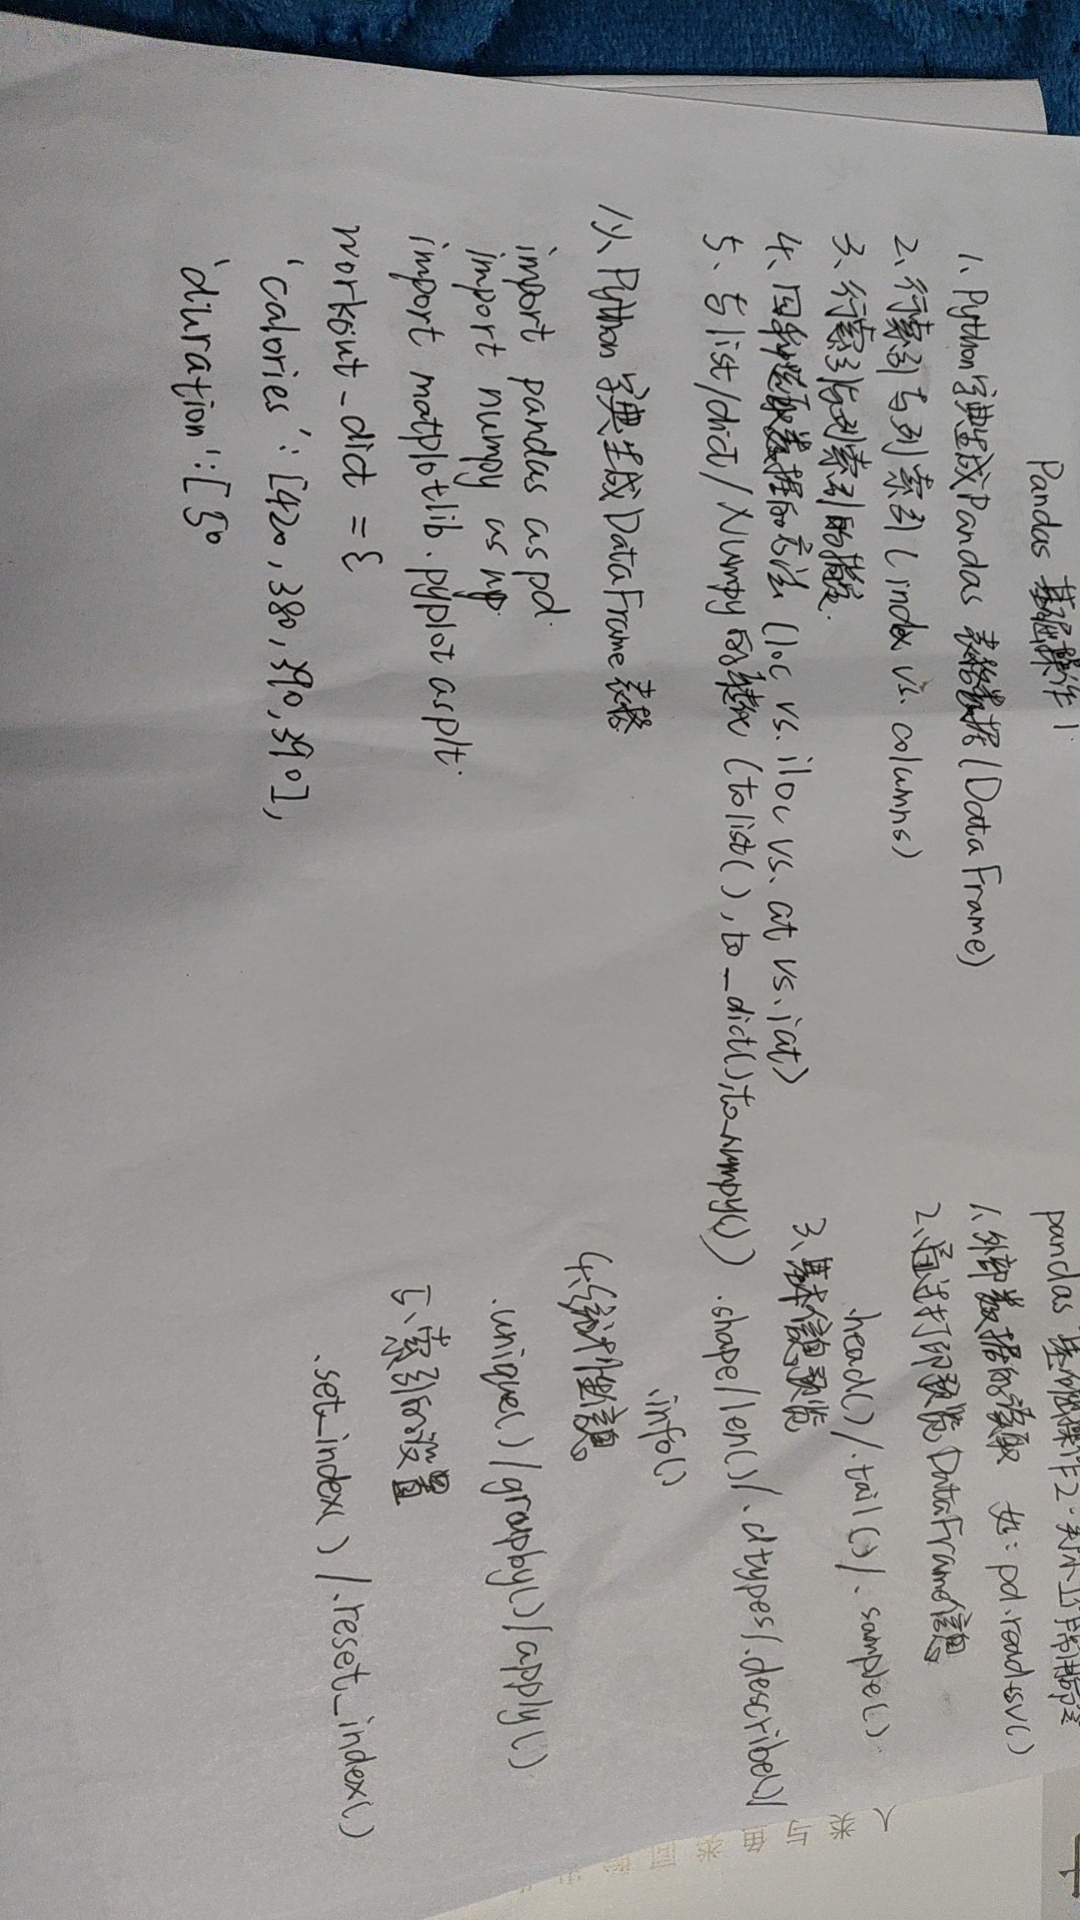 Pandas 基础操作1
1、Python字典生成Pandas 表格数据(DataFrame)
2、行索引与列索引(index vs. columns)
3、行索引与列索引的
4、四种选取数据的方法 (loc vs. iloc vs. at vs. iat)
5、与list/dict/Numpy的转换 (tolist(), to_dict(), to_numpy())
1、Python 字典生成DataFrame表格
import pandas as pd.
import numpy as np.
import matplotlib.pyplot as plt.
workout_dict = {
'calories':[420,380,390,390],
'duration':[50
pandas 基础操作2.
1、外部数据的读取 如: pd.readcsv()
2、通过打印预览DataFrame信息
.head()/.tail()/.sample().
3、基本信息预览
.shape/len()/.dtypes/.describe()/
.info()
4、统计性信息
.unique()/groupby()/apply().
5、索引的设置
.set_index()/.reset_index()
人类与鱼类同